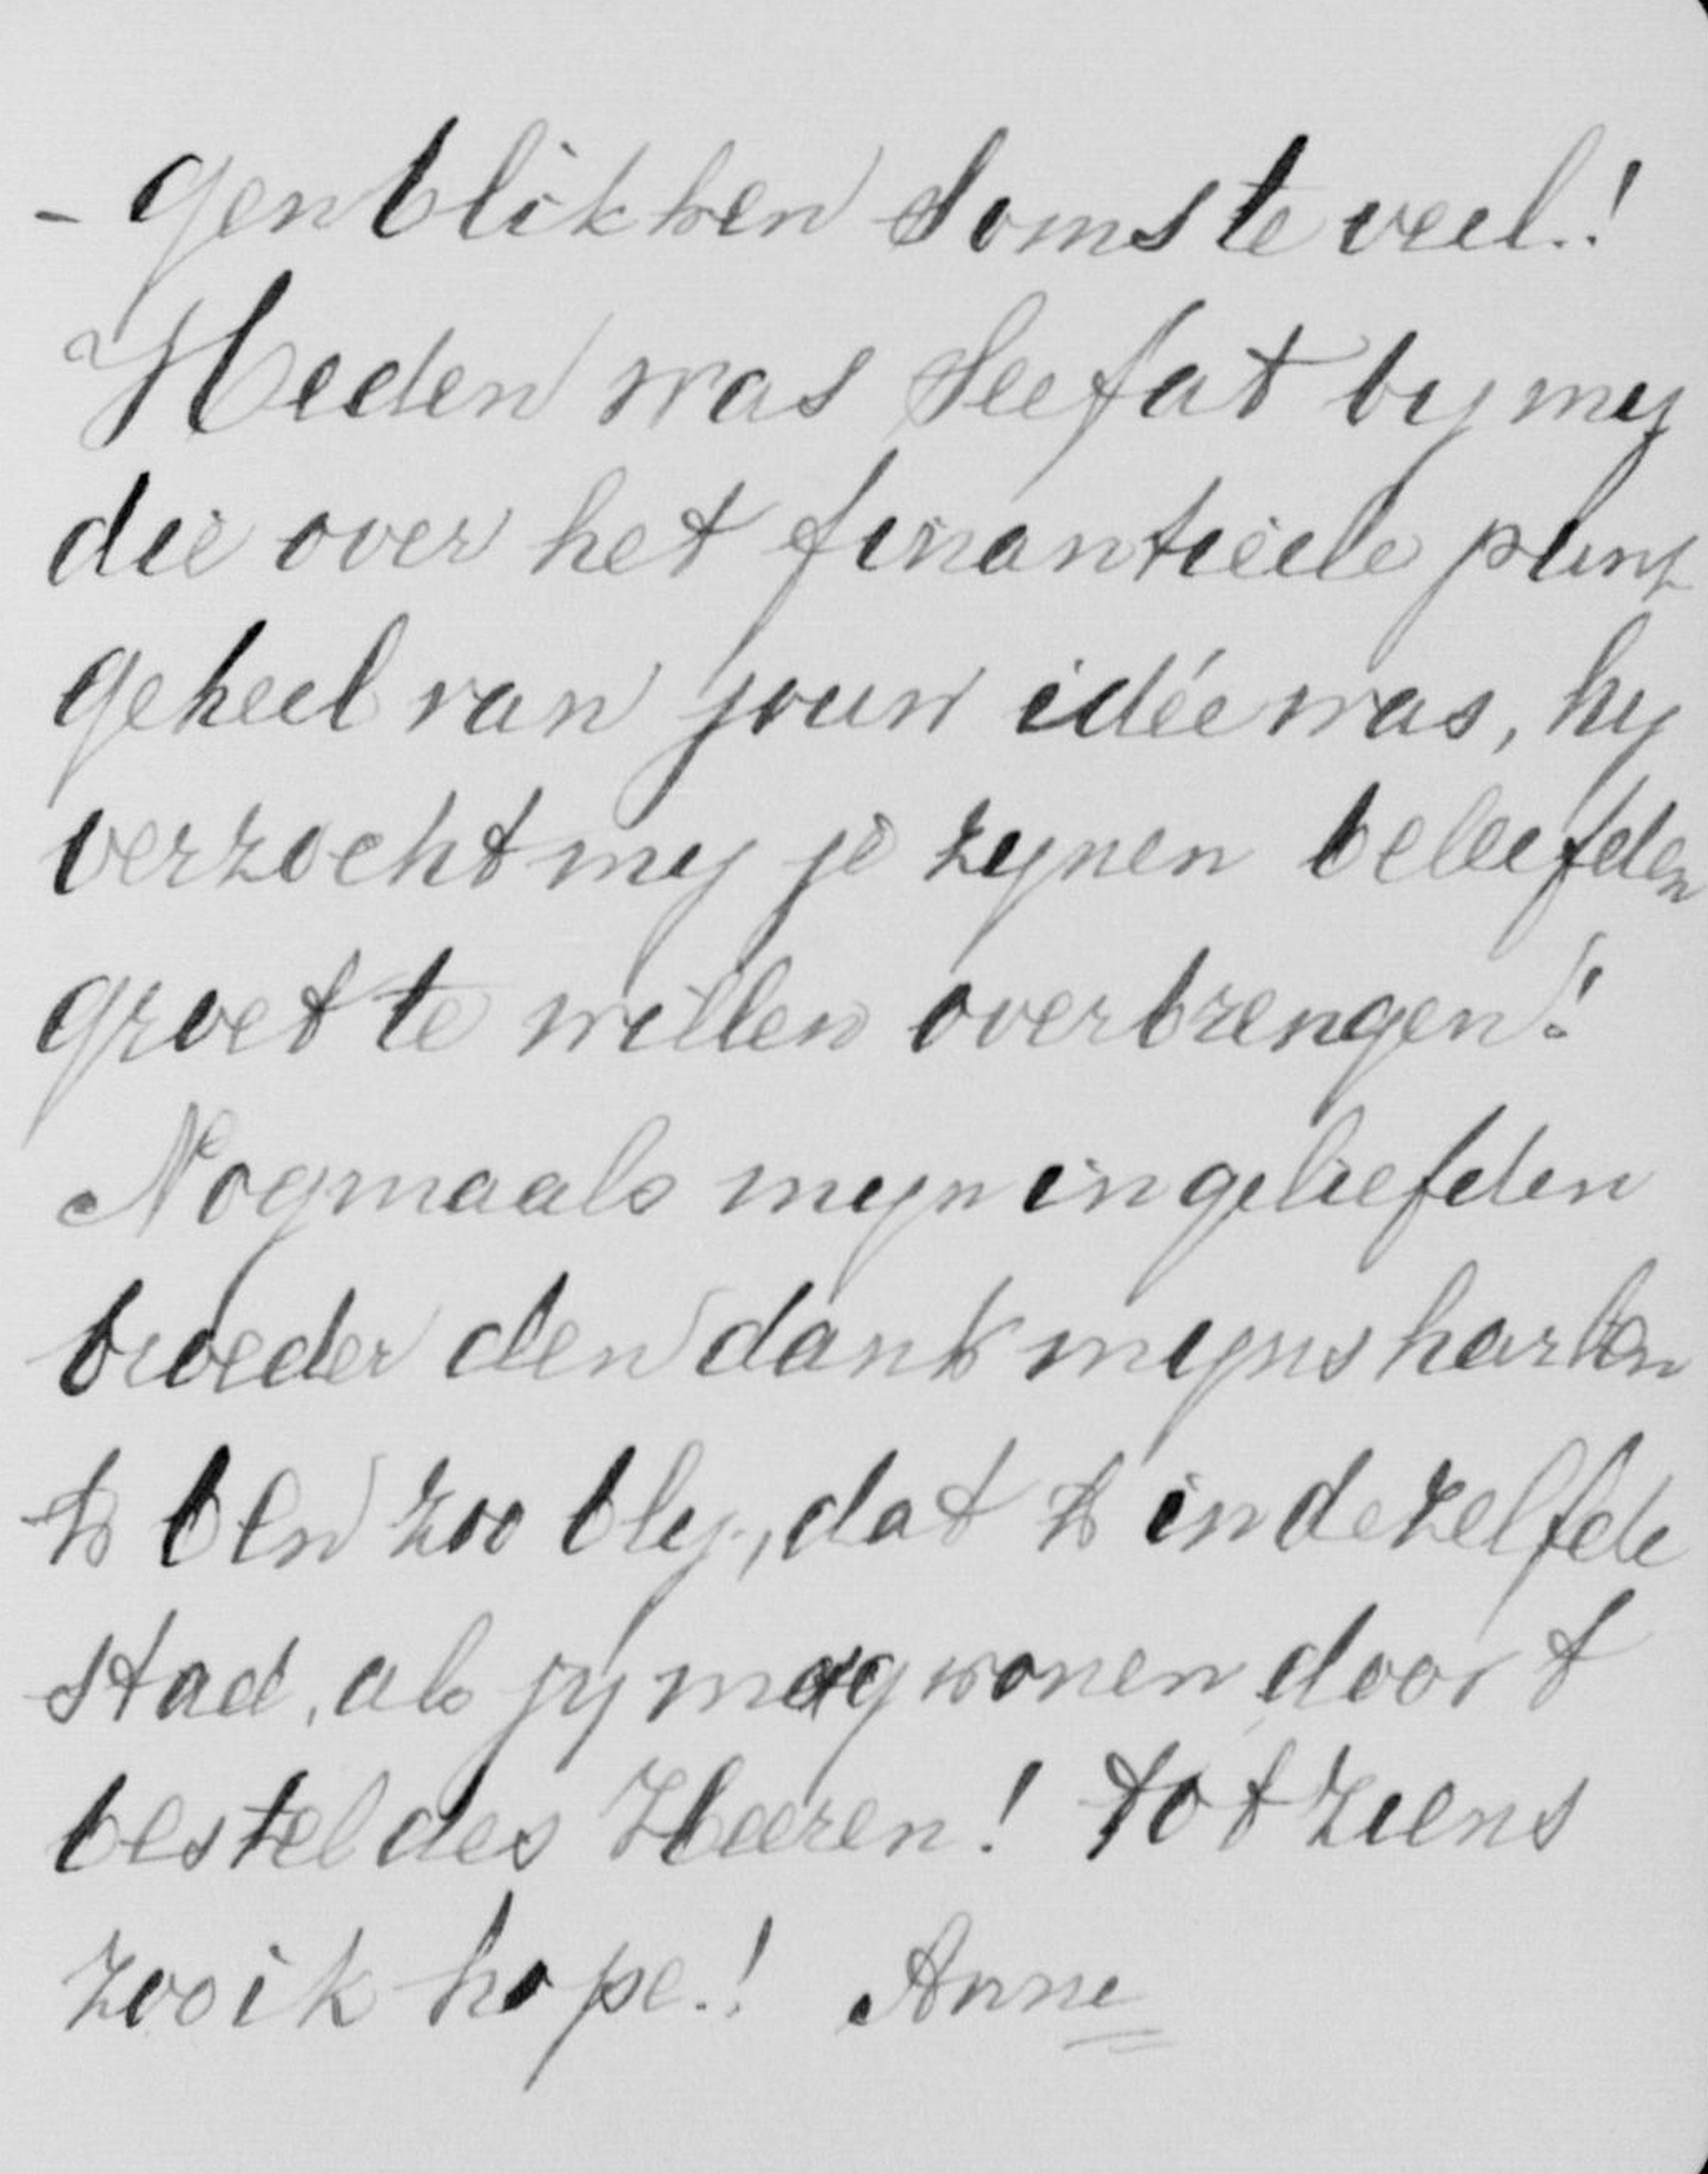 - genblikken soms te veel!
Heden was Seefat by my
die over het finantieële punt
geheel van jouw idée was, hy
verzocht my je zynen beleefden
groet te willen overbrengen!
Nogmaals myn ingeliefden
broeder den dank myns harten
Ik ben zoo bly, dat Ik in dezelfde
stad, als jij mag wonen door 't
bestel des Heeren! tot ziens
zoo ik hope! Anne